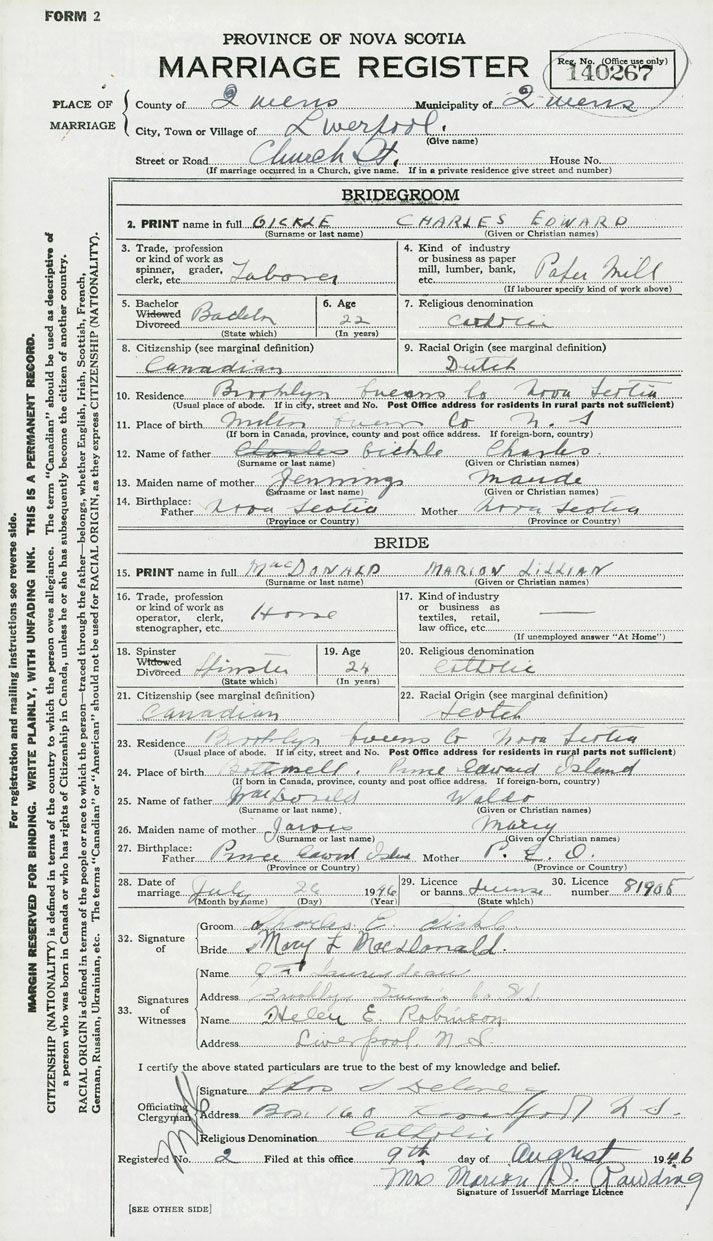 FORM 2
PROVINCE OF NOVA SCOTIA
MARRIAGE REGISTER
Reg. No. (Office use only)
140267
PLACE OF MARRIAGE
County of Queens Municipality of Queens
City, Town or Village of Liverpool.
(Give name)
Street or Road Church St. House No.
(If marriage occurred in a Church, give name. If in a private residence give street and number)
BRIDEGROOM
2. PRINT name in full GICKLE CHARLES EDWARD
(Surname or last name) (Given or Christian names)
3. Trade, profession or kind of work as spinner, grader, clerk, etc. Laborer
4. Kind of industry or business as paper mill, lumber, bank, etc. Paper Mill
(If labourer specify kind of work above)
5. Bachelor Widowed Divorced Bachelor
(State which)
6. Age 22
(In years)
7. Religious denomination Catholic
8. Citizenship (see marginal definition) Canadian
9. Racial Origin (see marginal definition) Dutch
10. Residence Brooklyn Queens Co Nova Scotia
(Usual place of abode. If in city, street and No. Post Office address for residents in rural parts not sufficient)
11. Place of birth Milton Queens Co N. S
(If born in Canada, province, county and post office address. If foreign-born, country)
12. Name of father Charles Gickle Charles.
(Surname or last name) (Given or Christian names)
13. Maiden name of mother Jennings Maude
(Surname or last name) (Given or Christian names)
14. Birthplace: Father Nova Scotia Mother Nova Scotia
(Province or Country) (Province or Country)
BRIDE
15. PRINT name in full MacDONALD MARION LILLIAN
(Surname or last name) (Given or Christian names)
16. Trade, profession or kind of work as operator, clerk, stenographer, etc. Home
17. Kind of industry or business as textiles, retail, law office, etc. —
(If unemployed answer "At Home")
18. Spinster Widowed Divorced Spinster
(State which)
19. Age 24
(In years)
20. Religious denomination Catholic
21. Citizenship (see marginal definition) Canadian
22. Racial Origin (see marginal definition) Scotch
23. Residence Brooklyn Queens Co Nova Scotia
(Usual place of abode. If in city, street and No. Post Office address for residents in rural parts not sufficient)
24. Place of birth Prince Edward Island
(If born in Canada, province, county and post office address. If foreign-born, country)
25. Name of father MacDonald Waldo
(Surname or last name) (Given or Christian names)
26. Maiden name of mother Jarvis Mary
(Surname or last name) (Given or Christian names)
27. Birthplace: Father Prince Edward Island Mother P. E. I.
(Province or Country) (Province or Country)
28. Date of marriage July 26 1946
(Month by name) (Day) (Year)
29. Licence or banns License
(State which)
30. Licence number
32. Signature of
Groom Charles E. Gickle
Bride Mary L MacDonald.
33. Signatures of Witnesses
Name
Address Brooklyn Queens Co. N.S.
Name Helen E. Robinson
Address Liverpool N.S.
I certify the above stated particulars are true to the best of my knowledge and belief.
Officiating Clergyman
Signature Thos J Delaney
Address Box 160 N S.
Religious Denomination Catholic
Registered No. 2 Filed at this office 9th day of August 1946
Mrs Marion D. Rawding
Signature of Issuer of Marriage Licence
[SEE OTHER SIDE]
For registration and mailing instructions see reverse side.
MARGIN RESERVED FOR BINDING. WRITE PLAINLY, WITH UNFADING INK. THIS IS A PERMANENT RECORD.
CITIZENSHIP (NATIONALITY) is defined in terms of the country to which the person owes allegiance. The term "Canadian" should be used as descriptive of
a person who was born in Canada or who has rights of Citizenship in Canada, unless he or she has subsequently become the citizen of another country.
RACIAL ORIGIN is defined in terms of the people or race to which the person—traced through the father—belongs, whether English, Irish, Scottish, French,
German, Russian, Ukrainian, etc. The terms "Canadian" or "American" should not be used for RACIAL ORIGIN, as they express CITIZENSHIP (NATIONALITY).